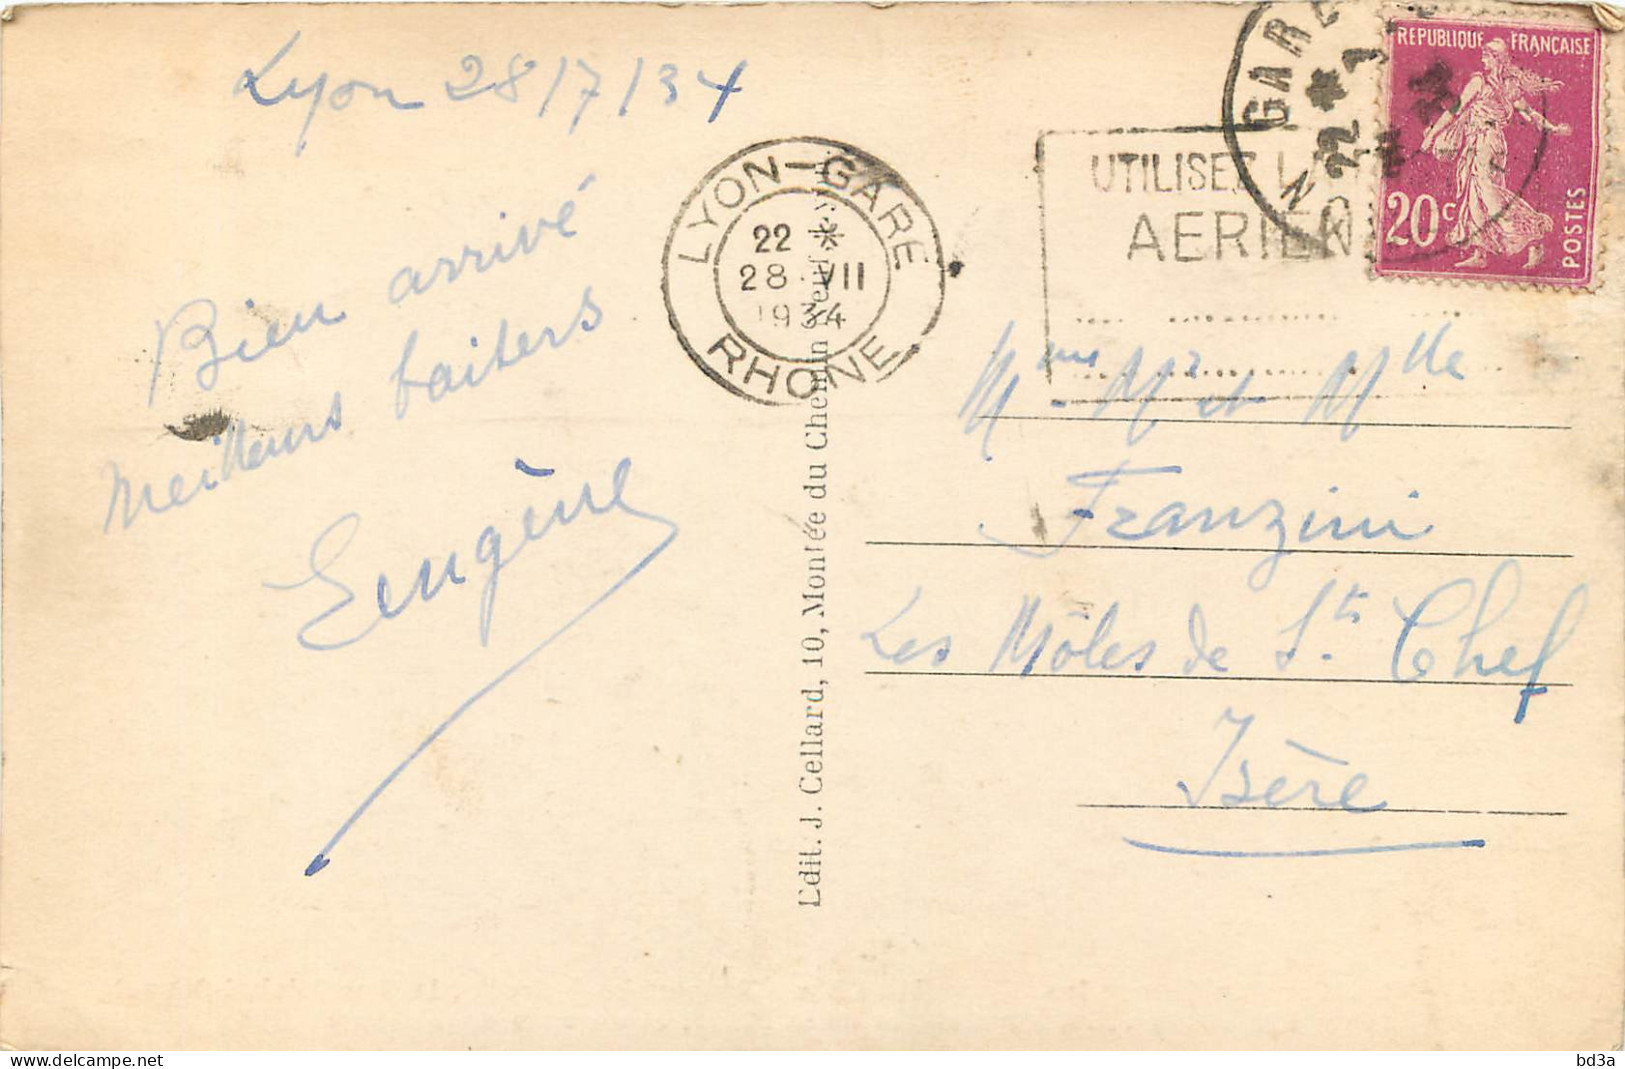 Lyon 28/7/34
Bien arrivé
Meilleurs baisers
Eugène
LYON-GARE
22 *
28 VII
1934
RHONE
UTILISEZ
AERIEN
GARE
22 *
REPUBLIQUE FRANÇAISE
20c
POSTES
Edit. J. Cellard, 10, Montée du Chemin Neuf
Mme Mr et Mlle
Franzini
Les Môles de St. Chef
Isère
delcampe.net
bd3a